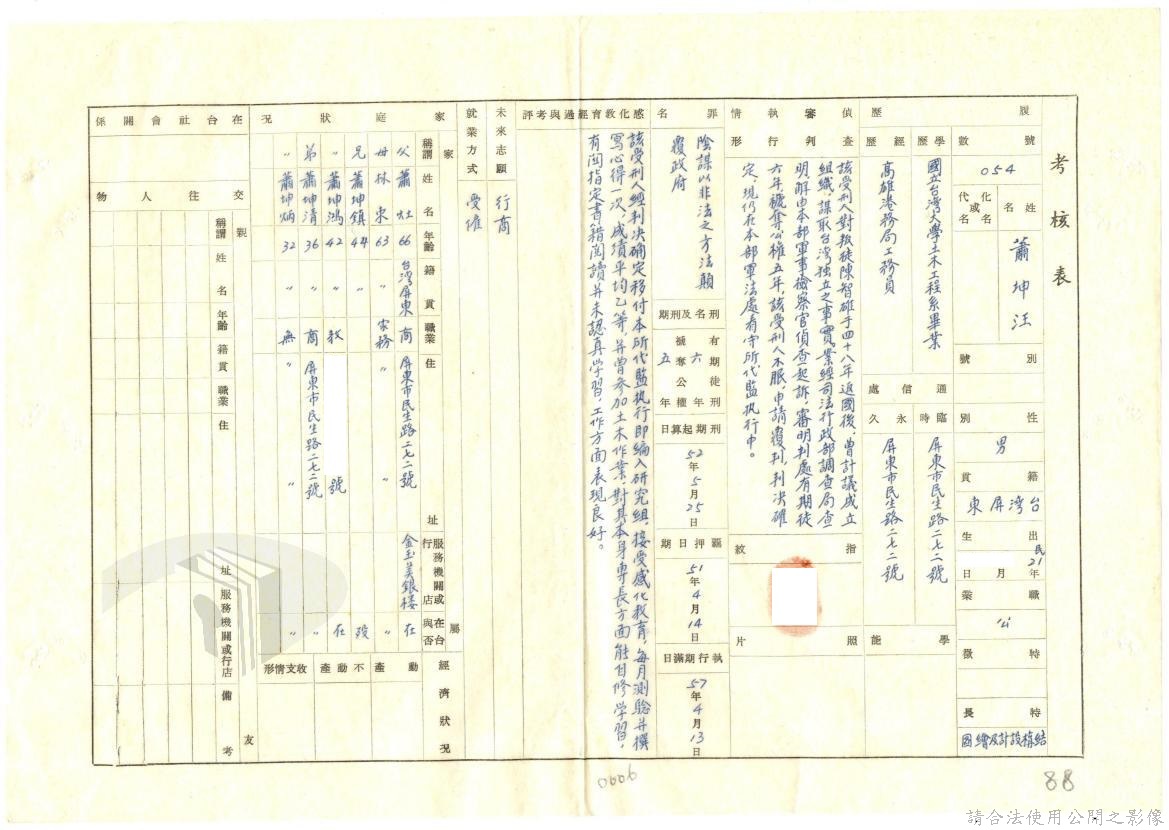 考核表
履歷
號數
054
姓名
化名或代名
蕭坤汪
別號
性別
男
籍貫
台灣屏東
出生年月日
民21
職業
公
特徵
特長
結構設計及繪圖
學歷
國立台灣大學土木工程系畢業
經歷
高雄港務局工務員
通信處
臨時
屏東市民生路二七二號
永久
屏東市民生路二七二號
學能
偵查審判執行情形
該受刑人對叛徒陳智雄于四十八年返國後,曾計議成立
組織,謀取台灣獨立之事實業經司法行政部調查局查
明解由本部軍事檢察官偵查起訴,審明判處有期徒
六年褫奪公權五年,該受刑人不服,申請覆判,判決確
定,現仍在本部軍法處看守所代監執行中。
指紋
照片
罪名
陰謀以非法之方法顛
覆政府
刑名及刑期
有期徒刑六年
褫奪公權五年
刑期起算日
52年5月25日
羈押日期
51年4月14日
執行期滿日
57年4月13日
感化教育經過與考評
該受刑人經判決確定移付本所代監執行即編入研究組,接受感化教育,每月測驗并撰
寫心得一次,成績平均乙等,并曾參加土木作業,對其本身專長方面能自修學習,
有閱指定書籍閱讀并未認真學習,工作方面表現良好。
未來志願
行商
就業方式
受僱
家庭狀況
家屬
稱謂 姓名 年齡 籍貫 職業 住址 服務機關或行店 在台與否
父 蕭灶 66 台灣屏東 商 屏東市民生路二七二號 金玉美銀樓 在
母 林東 63 〃 家務 〃 〃
兄 蕭坤鎮 44 〃 歿
〃 蕭坤鴻 42 〃 教 號 在
弟 蕭坤清 36 〃 商 屏東市民生路二七二號 〃
〃 蕭坤炳 32 〃 無 〃 〃 〃
經濟狀況
動產
不動產
收支情形
在台社會關係
親友
交往人物
稱謂 姓名 年齡 籍貫 職業 住址 服務機關或行店 備考
0006
88
請合法使用公開之影像